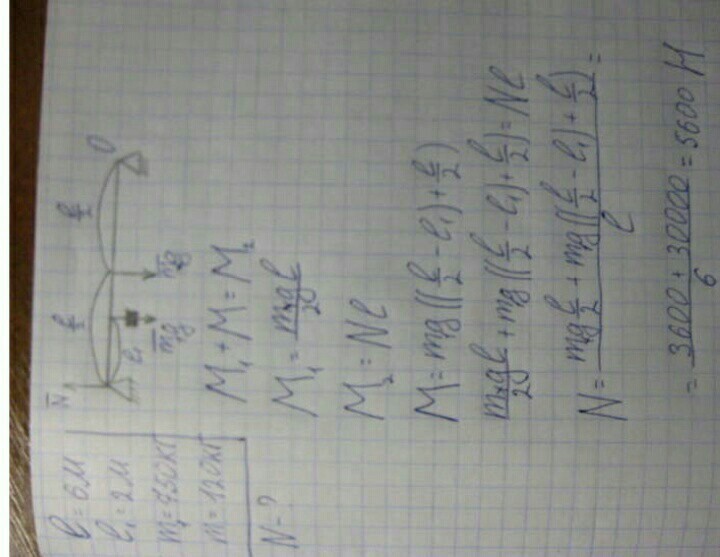 l = 6м
l₁ = 2м
m₁ = 750кг
m = 120кг
N - ?
N
l/2
l/2
O
l₁
mg
m₁g
M₁ + M = M₂
M₁ = m₁gl/2
M₂ = Nl
M = mg((l/2 - l₁) + l/2)
m₁gl/2 + mg((l/2 - l₁) + l/2) = Nl
N = (mg l/2 + mg((l/2 - l₁) + l/2))/l =
= (3600 + 30000)/6 = 5600 Н